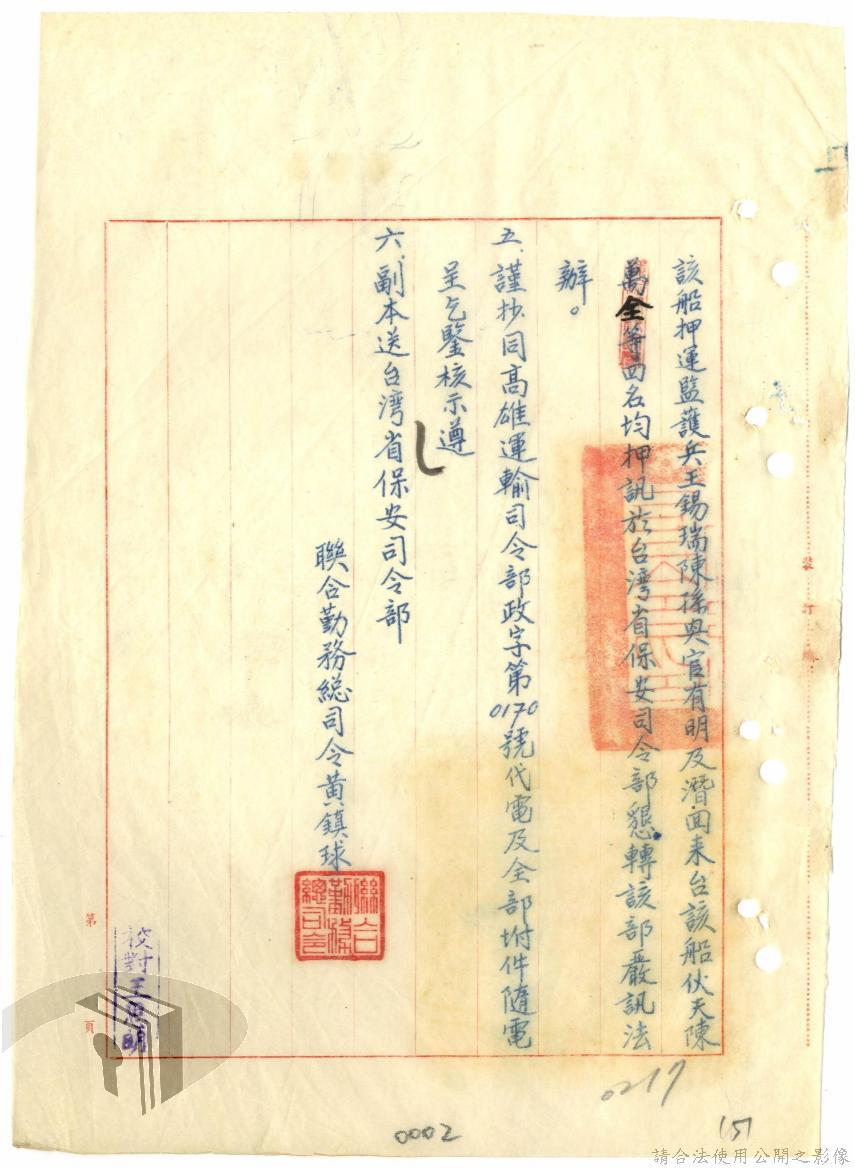 該船押運監護兵王錫瑞陳孫與官有明及潛回來台該船伙夫陳
萬全等四名均押訊於台湾省保安司令部懇轉該部嚴訊法
辦。
五、謹抄同高雄運輸司令部政字第0170號代電及全部坿件隨電
呈乞鑒核示遵
六、副本送台湾省保安司令部
聯合勤務総司令黃鎮球
聯合勤務總司令
校對王
裝訂
第頁
0217
0002
151
請合法使用公開之影像